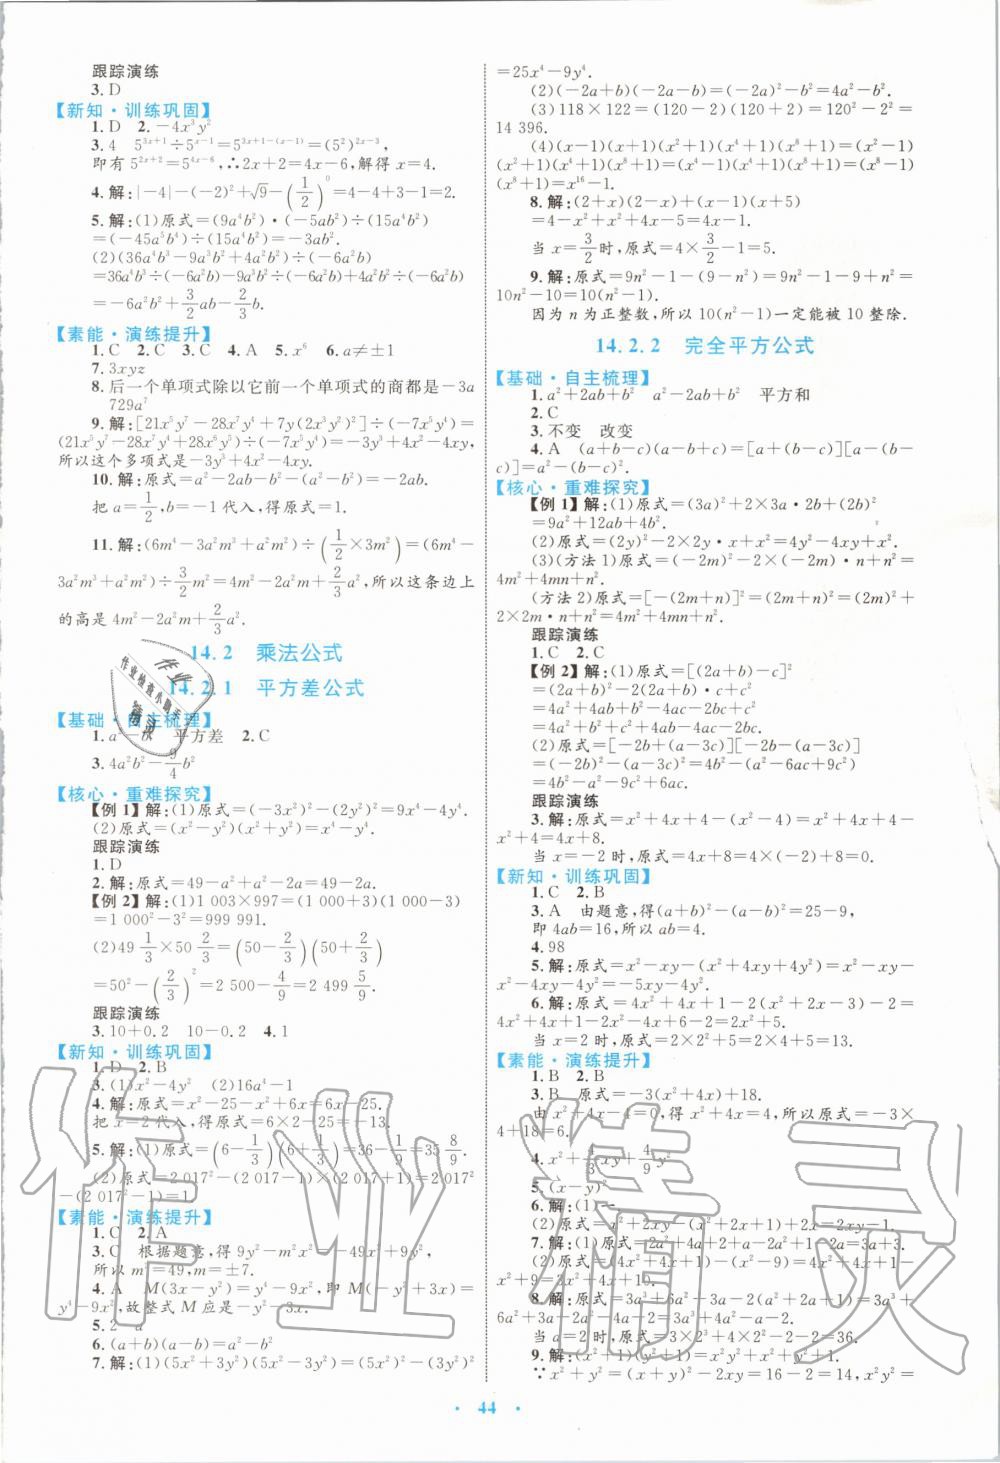 跟踪演练
3. D
【新知·训练巩固】
1. D　2. －4x³y²
3. 4　5^{3x+1}÷5^{x－1}=5^{3x+1－(x－1)}=(5²)^{2x－3},
即有 5^{2x+2}=5^{4x－6},∴2x+2=4x－6,解得 x=4.
4. 解:|－4|－(－2)²+√9－(1/2)⁰=4－4+3－1=2.
5. 解:(1)原式=(9a⁴b²)·(－5ab²)÷(15a⁴b²)
=(－45a⁵b⁴)÷(15a⁴b²)=－3ab².
(2)(36a⁴b³－9a³b²+4a²b²)÷(－6a²b)
=36a⁴b³÷(－6a²b)－9a³b²÷(－6a²b)+4a²b²÷(－6a²b)
=－6a²b²+3/2ab－2/3b.
【素能·演练提升】
1. C　2. C　3. C　4. A　5. x⁶　6. a≠±1
7. 3xyz
8. 后一个单项式除以它前一个单项式的商都是－3a
729a⁷
9. 解:[21x⁵y⁷－28x⁷y⁴+7y(2x³y²)²]÷(－7x⁵y⁴)=
(21x⁵y⁷－28x⁷y⁴+28x⁶y⁵)÷(－7x⁵y⁴)=－3y³+4x²－4xy,
所以这个多项式是－3y³+4x²－4xy.
10. 解:原式=a²－2ab－b²－(a²－b²)=－2ab.
把 a=1/2,b=－1 代入,得原式=1.
11. 解:(6m⁴－3a²m³+a²m²)÷(1/2×3m²)=(6m⁴－
3a²m³+a²m²)÷3/2m²=4m²－2a²m+2/3a²,所以这条边上
的高是 4m²－2a²m+2/3a².
14.2　乘法公式
14.2.1　平方差公式
【基础·自主梳理】
1. a²－b²　平方差　2. C
3. 4a²b²－9/4b²
【核心·重难探究】
【例 1】解:(1)原式=(－3x²)²－(2y²)²=9x⁴－4y⁴.
(2)原式=(x²－y²)(x²+y²)=x⁴－y⁴.
跟踪演练
1. D
2. 解:原式=49－a²+a²－2a=49－2a.
【例 2】解:(1)1 003×997=(1 000+3)(1 000－3)
=1 000²－3²=999 991.
(2)49 1/3×50 2/3=(50－2/3)(50+2/3)
=50²－(2/3)²=2 500－4/9=2 499 5/9.
跟踪演练
3. 10+0.2　10－0.2　4. 1
【新知·训练巩固】
1. D　2. B
3. (1)x²－4y²　(2)16a⁴－1
4. 解:原式=x²－25－x²+6x=6x－25.
把 x=2 代入,得原式=6×2－25=－13.
5. 解:(1)原式=(6－1/3)(6+1/3)=36－1/9=35 8/9.
(2)原式=2 017²－(2 017－1)×(2 017+1)=2 017²
－(2 017²－1)=1.
【素能·演练提升】
1. C　2. A
3. C　根据题意,得9y²－m²x²=－49x²+9y²,
所以 m²=49,m=±7.
4. A　M(3x－y²)=y⁴－9x²,即 M(－y²+3x)=
y⁴－9x²,故整式 M 应是－y²－3x.
6. (a+b)(a－b)=a²－b²
7. 解:(1)(5x²+3y²)(5x²－3y²)=(5x²)²－(3y²)²
=25x⁴－9y⁴.
(2)(－2a+b)(－2a－b)=(－2a)²－b²=4a²－b².
(3)118×122=(120－2)(120+2)=120²－2²=
14 396.
(4)(x－1)(x+1)(x²+1)(x⁴+1)(x⁸+1)=(x²－1)
(x²+1)(x⁴+1)(x⁸+1)=(x⁴－1)(x⁴+1)(x⁸+1)=(x⁸－1)
(x⁸+1)=x¹⁶－1.
8. 解:(2+x)(2－x)+(x－1)(x+5)
=4－x²+x²+4x－5=4x－1.
当 x=3/2时,原式=4×3/2－1=5.
9. 解:原式=9n²－1－(9－n²)=9n²－1－9+n²=
10n²－10=10(n²－1).
因为 n 为正整数,所以 10(n²－1)一定能被 10 整除.
14.2.2　完全平方公式
【基础·自主梳理】
1. a²+2ab+b²　a²－2ab+b²　平方和
2. C
3. 不变　改变
4. A　(a+b－c)(a－b+c)=[a+(b－c)][a－(b－
c)]=a²－(b－c)².
【核心·重难探究】
【例 1】解:(1)原式=(3a)²+2×3a·2b+(2b)²
=9a²+12ab+4b².
(2)原式=(2y)²－2×2y·x+x²=4y²－4xy+x².
(3)(方法1)原式=(－2m)²－2×(－2m)·n+n²=
4m²+4mn+n².
(方法 2)原式=[－(2m+n)]²=(2m+n)²=(2m)²+
2×2m·n+n²=4m²+4mn+n².
跟踪演练
1. C　2. C
【例 2】解:(1)原式=[(2a+b)－c]²
=(2a+b)²－2(2a+b)·c+c²
=4a²+4ab+b²－4ac－2bc+c²
=4a²+b²+c²+4ab－4ac－2bc.
(2)原式=[－2b+(a－3c)][－2b－(a－3c)]
=(－2b)²－(a－3c)²=4b²－(a²－6ac+9c²)
=4b²－a²－9c²+6ac.
跟踪演练
3. 解:原式=x²+4x+4－(x²－4)=x²+4x+4－
x²+4=4x+8.
当 x=－2 时,原式=4x+8=4×(－2)+8=0.
【新知·训练巩固】
1. C　2. B
3. A　由题意,得(a+b)²－(a－b)²=25－9,
即 4ab=16,所以 ab=4.
4. 98
5. 解:原式=x²－xy－(x²+4xy+4y²)=x²－xy－
x²－4xy－4y²=－5xy－4y².
6. 解:原式=4x²+4x+1－2(x²+2x－3)－2=
4x²+4x+1－2x²－4x+6－2=2x²+5.
当 x=√2时,原式=2×2+5=4+5=9.
【素能·演练提升】
1. B　2. B
3. B　原式=－3(x²+4x)+18.
由 x²+4x－4=0,得 x²+4x=4,所以原式=－3×
4+18=6.
4. x²+4/3xy+4/9y²
5. (x－y)²
(2)原式=x²+2xy+y²－x²－y²+1=2xy－1.
7. 解:(1)原式=2a²+4a+2+a－2a²=2a+3a+3.
8. 解:原式=3a³+6a²+3a－2(a²+2a+1)=3a³+
6a²+3a－2a²－4a－2=3a³+4a²－a－2.
当 a=2 时,原式=3×2³+4×2²－2－2=36.
9. 解:(x²+1)(y²+1)=x²y²+x²+y²+1.
∵x²+y²=(x+y)²－2xy=16－2=14,
· 44 ·
作业检查小助手
作业精灵
作业精灵